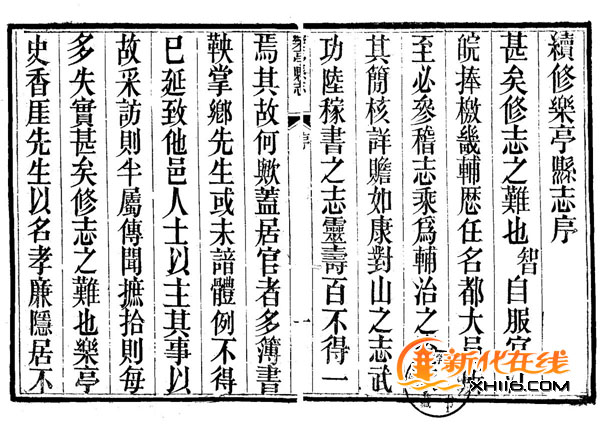 續修樂亭縣志序
甚矣修志之難也智自服官
皖捧檄畿輔歴任名都大邑
至必參稽志乘爲輔治之
其簡核詳贍如康對山之志武
功陸稼書之志靈壽百不得一
樂亭縣志
序
一
焉其故何歟蓋居官者多簿書
鞅掌鄉先生或未諳體例不得
已延致他邑人士以主其事以
故采訪則半屬傳聞摭拾則每
多失實甚矣修志之難也樂亭
史香厓先生以名孝廉隱居不
新化在线
XHIID.COM